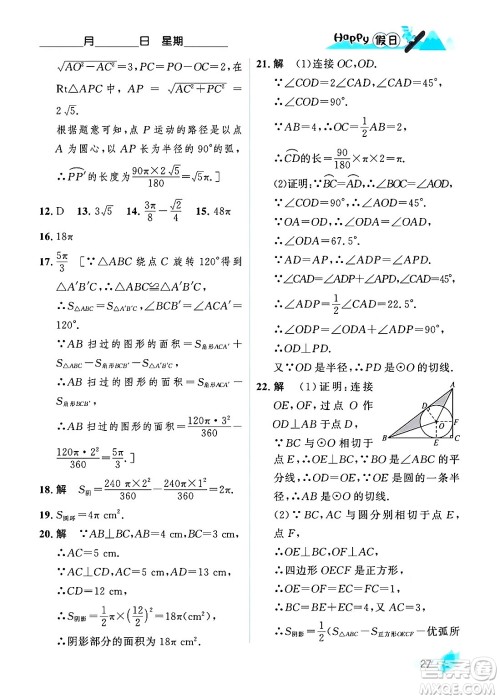 月 日 星期
Happy 假日
√(AO²−AC²)=3，PC=PO−OC=2，在
Rt△APC 中，AP = √(AC²+PC²) =
2√5.
根据题意可知，点 P 运动的路径是以点
A 为圆心，以 AP 为半径的 90°的弧，
∴PP′的长度为 (90π×2√5)/180 = √5π.]
12. D 13. 3√5 14. 3π/8−√2/4 15. 48π
16. 18π
17. 5π/3 [∵△ABC 绕点 C 旋转 120°得到
△A′B′C，∴△ABC≌△A′B′C，
∴S△ABC=S△A′B′C，∠BCB′=∠ACA′=
120°.
∵AB 扫过的图形的面积=S扇形ACA′+
S△ABC−S扇形BCB′−S△A′B′C，
∴AB 扫过的图形的面积=S扇形ACA′−
S扇形BCB′，
∴AB 扫过的图形的面积= (120π·3²)/360 −
(120π·2²)/360 = 5π/3.]
18. 解 S阴=(240π×2²)/360−(240π×1²)/360=2π.
19. S圆环=4π cm².
20. 解 ∵AB⊥BC，AB=4 cm，BC=3 cm，
∴AC=5 cm，
∵AC⊥CD，AD=13 cm，
∴CD=12 cm，
∴S阴影=1/2π×(12/2)²=18π(cm²)，
∴阴影部分的面积为 18π cm².
21. 解 (1)连接 OC，OD.
∵∠COD=2∠CAD，∠CAD=45°，
∴∠COD=90°.
∵AB=4，∴OC=1/2AB=2，
∴CD的长= 90/180×π×2=π.
(2)证明：∵BC=AD，∴∠BOC=∠AOD.
∵∠COD=90°，∴∠AOD=45°.
∵OA=OD，∴∠ODA=∠OAD，
∴∠OAD=67.5°.
∵AD=AP，∴∠ADP=∠APD，
∴∠ADP=1/2∠CAD=22.5°，
∴∠ODP=∠ODA+∠ADP=90°，
∴OD⊥PD.
又∵OD是半径，∴PD是⊙O的切线.
22. 解 (1)证明：连接
OE，OF，过点 O 作
OD⊥AB 于点 D，
∵BC 与⊙O 相切于
点 E，∴OE⊥BC.
∵BO是∠ABC的平
分线，∴OD=OE，OD是圆的一条半
径，∴AB是⊙O的切线.
(2)∵BC，AC 与圆分别相切于点 E，
点 F，∴OE⊥BC，OF⊥AC.
∴四边形 OECF 是正方形，
∴OE=OF=EC=FC=1，
∴BC=3，AC=4.
∴S阴影=1/2(S△ABC−S正方形OECF−优弧所
A
B
E
C
O
27